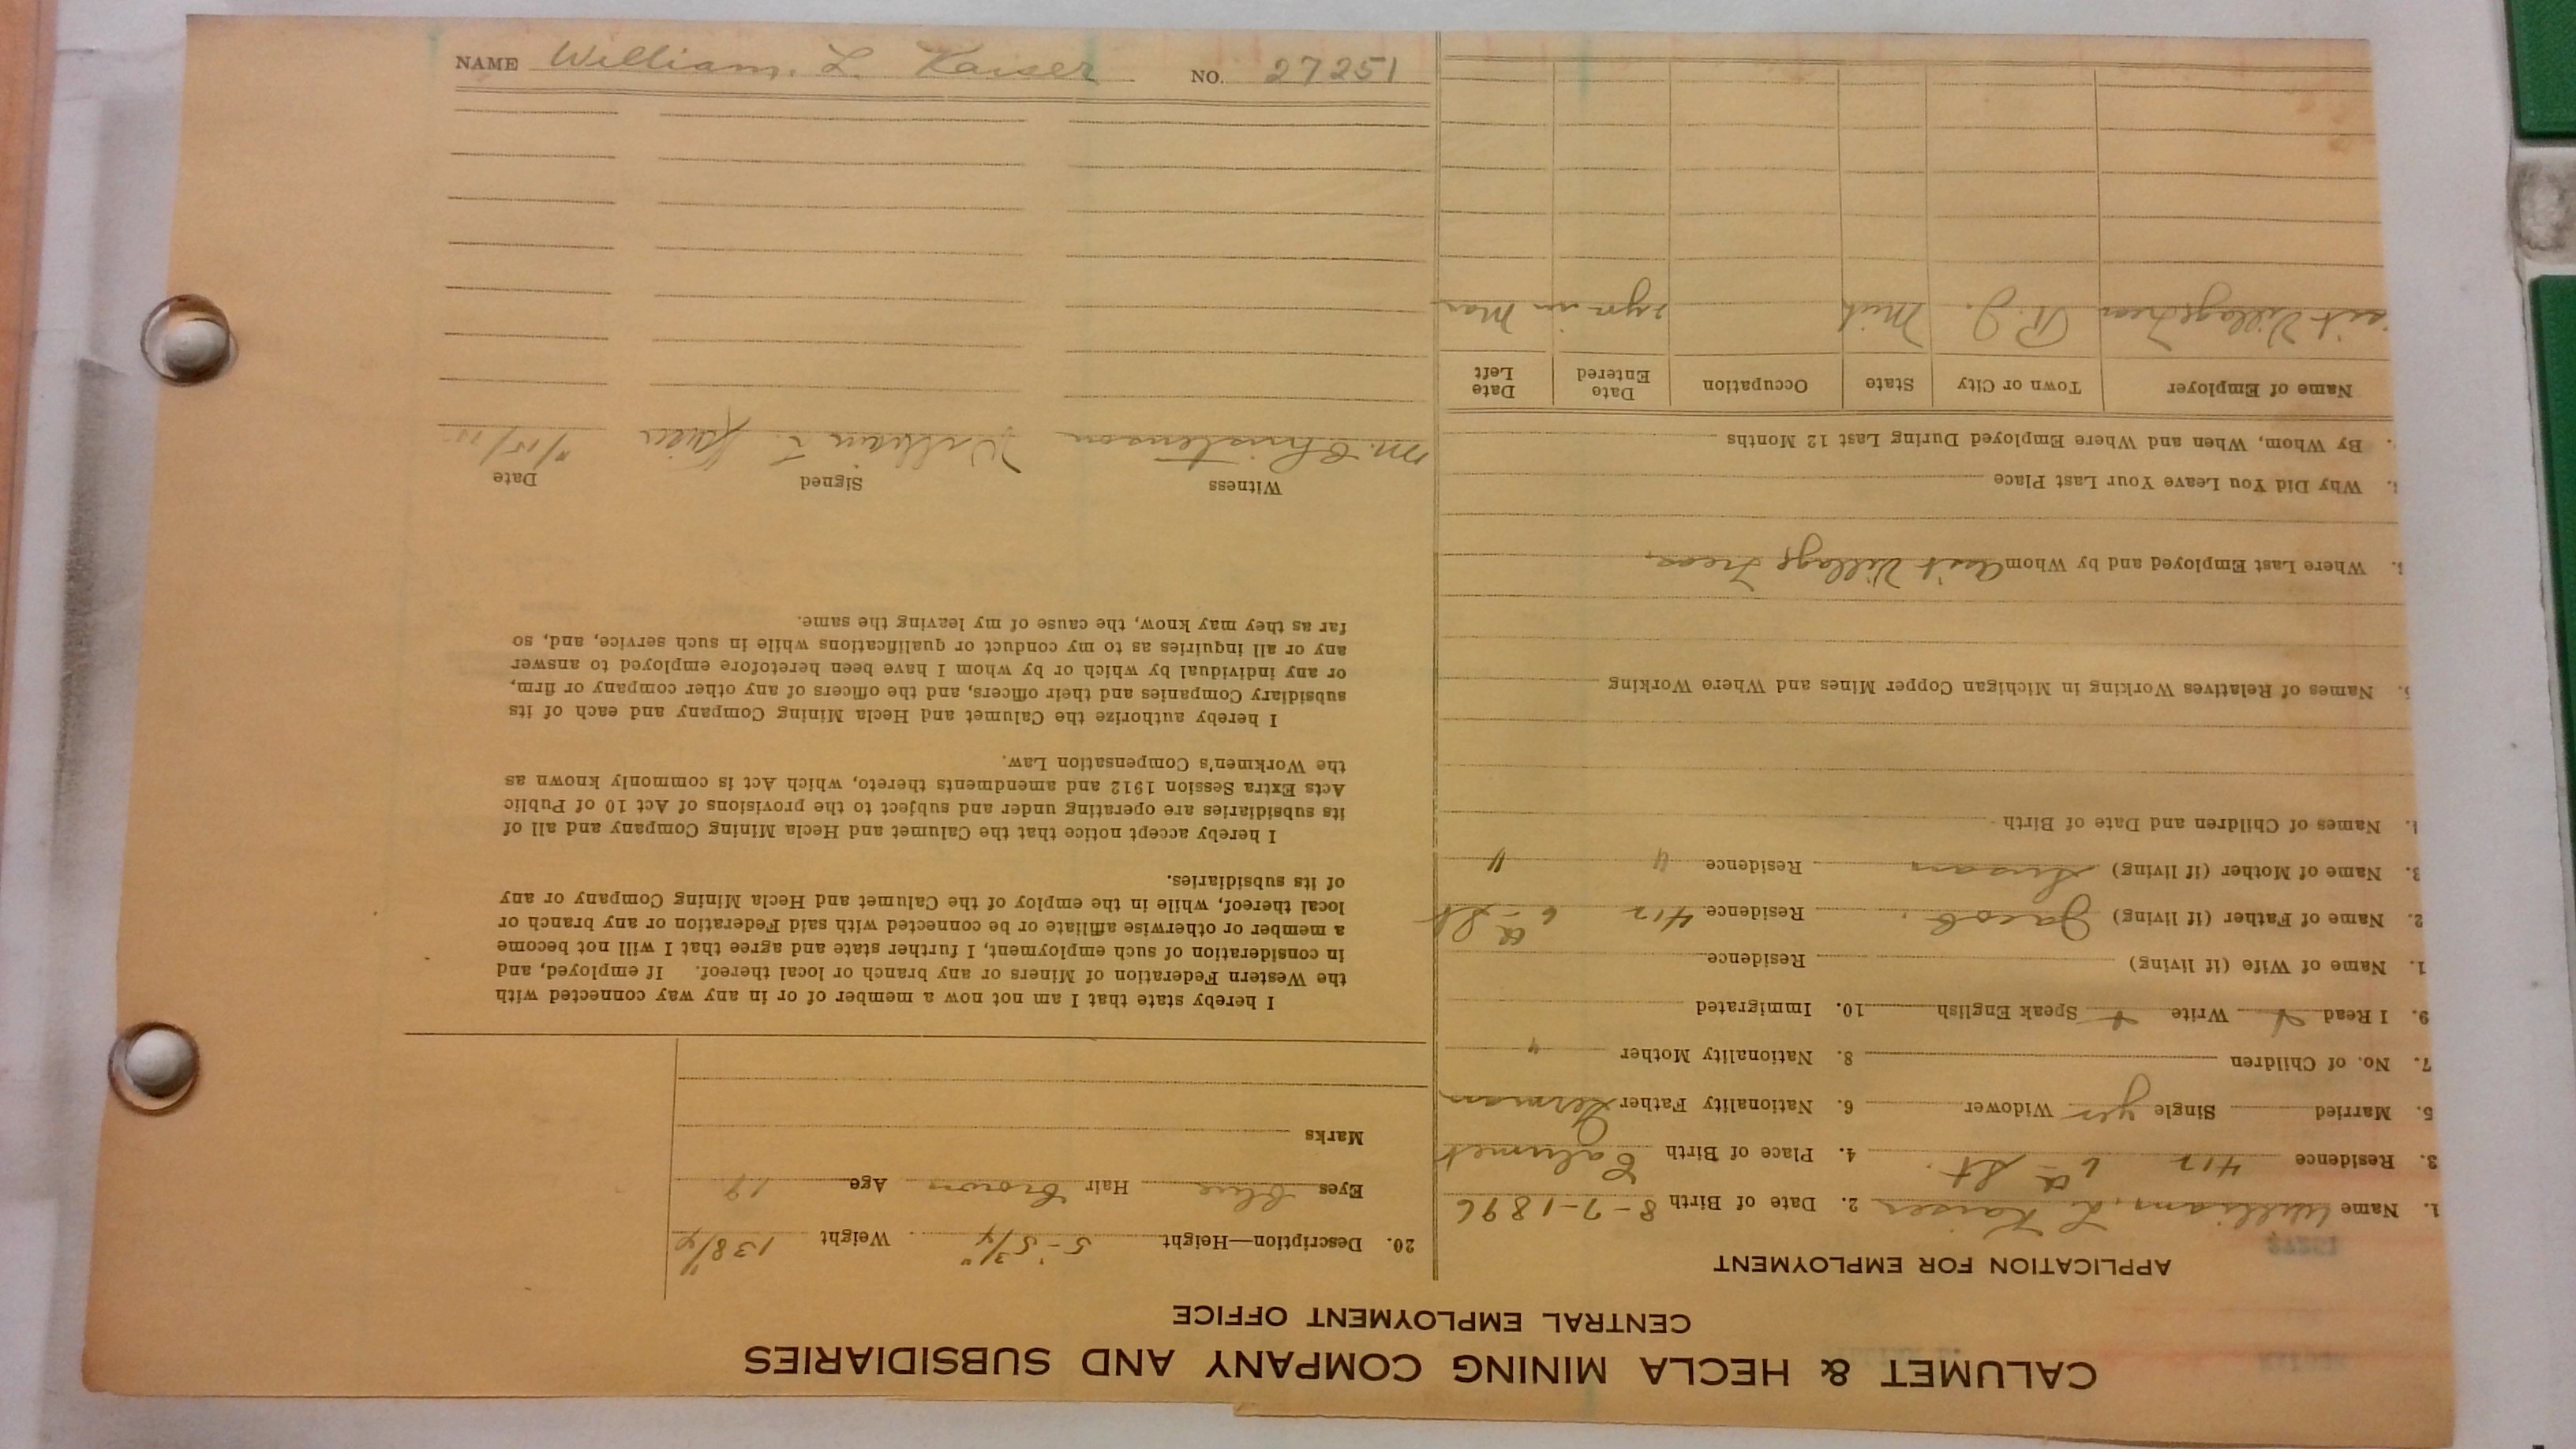 CALUMET & HECLA MINING COMPANY AND SUBSIDIARIES
CENTRAL EMPLOYMENT OFFICE
APPLICATION FOR EMPLOYMENT
1. Name William, L. Kaiser 2. Date of Birth 8-7-1896
3. Residence 417 6 th St. 4. Place of Birth Calumet
5. Married Single yes Widower 6. Nationality Father German
7. No. of Children 8. Nationality Mother "
9. I Read Write Speak English 10. Immigrated
1. Name of Wife (if living) Residence
2. Name of Father (if living) Jacob. Residence 417 6 th St
3. Name of Mother (if living) Susan Residence " "
4. Names of Children and Date of Birth
5. Names of Relatives Working in Michigan Copper Mines and Where Working
Where Last Employed and by Whom Ass't Village Treas.
Why Did You Leave Your Last Place
By Whom, When and Where Employed During Last 12 Months
Name of Employer Town or City State Occupation Date Entered Date Left
ass't Village Treas R. J. Mich in Mar
20. Description—Height 5'-5 3/4" Weight 138
Eyes blue Hair brown Age 19
Marks
I hereby state that I am not now a member of or in any way connected with
the Western Federation of Miners or any branch or local thereof. If employed, and
in consideration of such employment, I further state and agree that I will not become
a member or otherwise affiliate or be connected with said Federation or any branch or
local thereof, while in the employ of the Calumet and Hecla Mining Company or any
of its subsidiaries.
I hereby accept notice that the Calumet and Hecla Mining Company and all of
its subsidiaries are operating under and subject to the provisions of Act 10 of Public
Acts Extra Session 1912 and amendments thereto, which Act is commonly known as
the Workmen's Compensation Law.
I hereby authorize the Calumet and Hecla Mining Company and each of its
subsidiary Companies and their officers, and the officers of any other company or firm,
or any individual by which or by whom I have been heretofore employed to answer
any or all inquiries as to my conduct or qualifications while in such service, and, so
far as they may know, the cause of my leaving the same.
Witness Signed Date
M. Christenson William L. Kaiser
NAME William. L. Kaiser NO. 27251